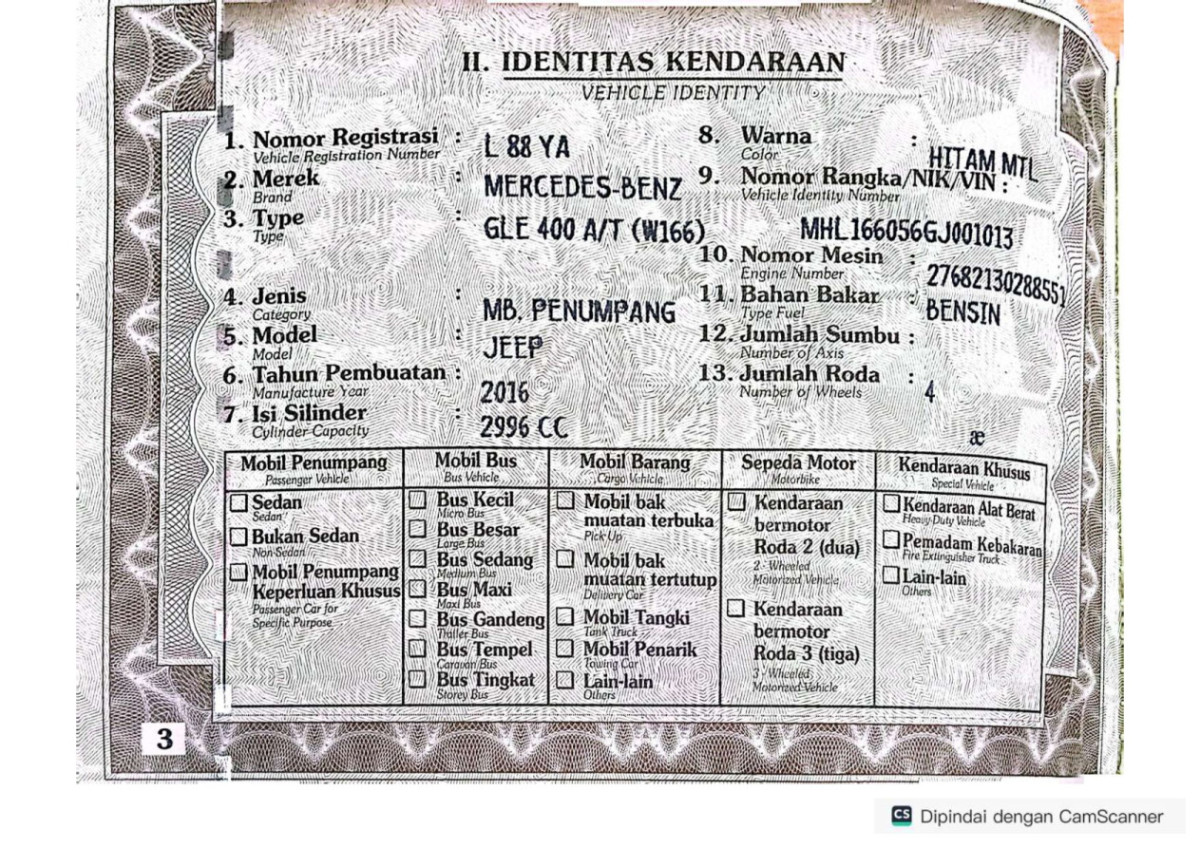 II. IDENTITAS KENDARAAN
VEHICLE IDENTITY
1. Nomor Registrasi : L 88 YA
Vehicle Registration Number
2. Merek : MERCEDES-BENZ
Brand
3. Type : GLE 400 A/T (W166)
Type
4. Jenis : MB. PENUMPANG
Category
5. Model : JEEP
Model
6. Tahun Pembuatan : 2016
Manufacture Year
7. Isi Silinder : 2996 CC
Cylinder Capacity
8. Warna : HITAM MTL
Color
9. Nomor Rangka/NIK/VIN :
Vehicle Identity Number
MHL166056GJ001013
10. Nomor Mesin : 27682130288551
Engine Number
11. Bahan Bakar : BENSIN
Type Fuel
12. Jumlah Sumbu :
Number of Axis
13. Jumlah Roda : 4
Number of Wheels
æ
Mobil Penumpang
Passenger Vehicle
Sedan
Sedan
Bukan Sedan
Non Sedan
Mobil Penumpang
Keperluan Khusus
Passenger Car for
Specific Purpose
Mobil Bus
Bus Vehicle
Bus Kecil
Micro Bus
Bus Besar
Large Bus
Bus Sedang
Medium Bus
Bus Maxi
Maxi Bus
Bus Gandeng
Trailer Bus
Bus Tempel
Caravan Bus
Bus Tingkat
Storey Bus
Mobil Barang
Cargo Vehicle
Mobil bak
muatan terbuka
Pick Up
Mobil bak
muatan tertutup
Delivery Car
Mobil Tangki
Tank Truck
Mobil Penarik
Towing Car
Lain-lain
Others
Sepeda Motor
Motorbike
Kendaraan
bermotor
Roda 2 (dua)
2 - Wheeled
Motorized Vehicle
Kendaraan
bermotor
Roda 3 (tiga)
3 - Wheeled
Motorized Vehicle
Kendaraan Khusus
Special Vehicle
Kendaraan Alat Berat
Heavy Duty Vehicle
Pemadam Kebakaran
Fire Extinguisher Truck
Lain-lain
Others
3
CS Dipindai dengan CamScanner